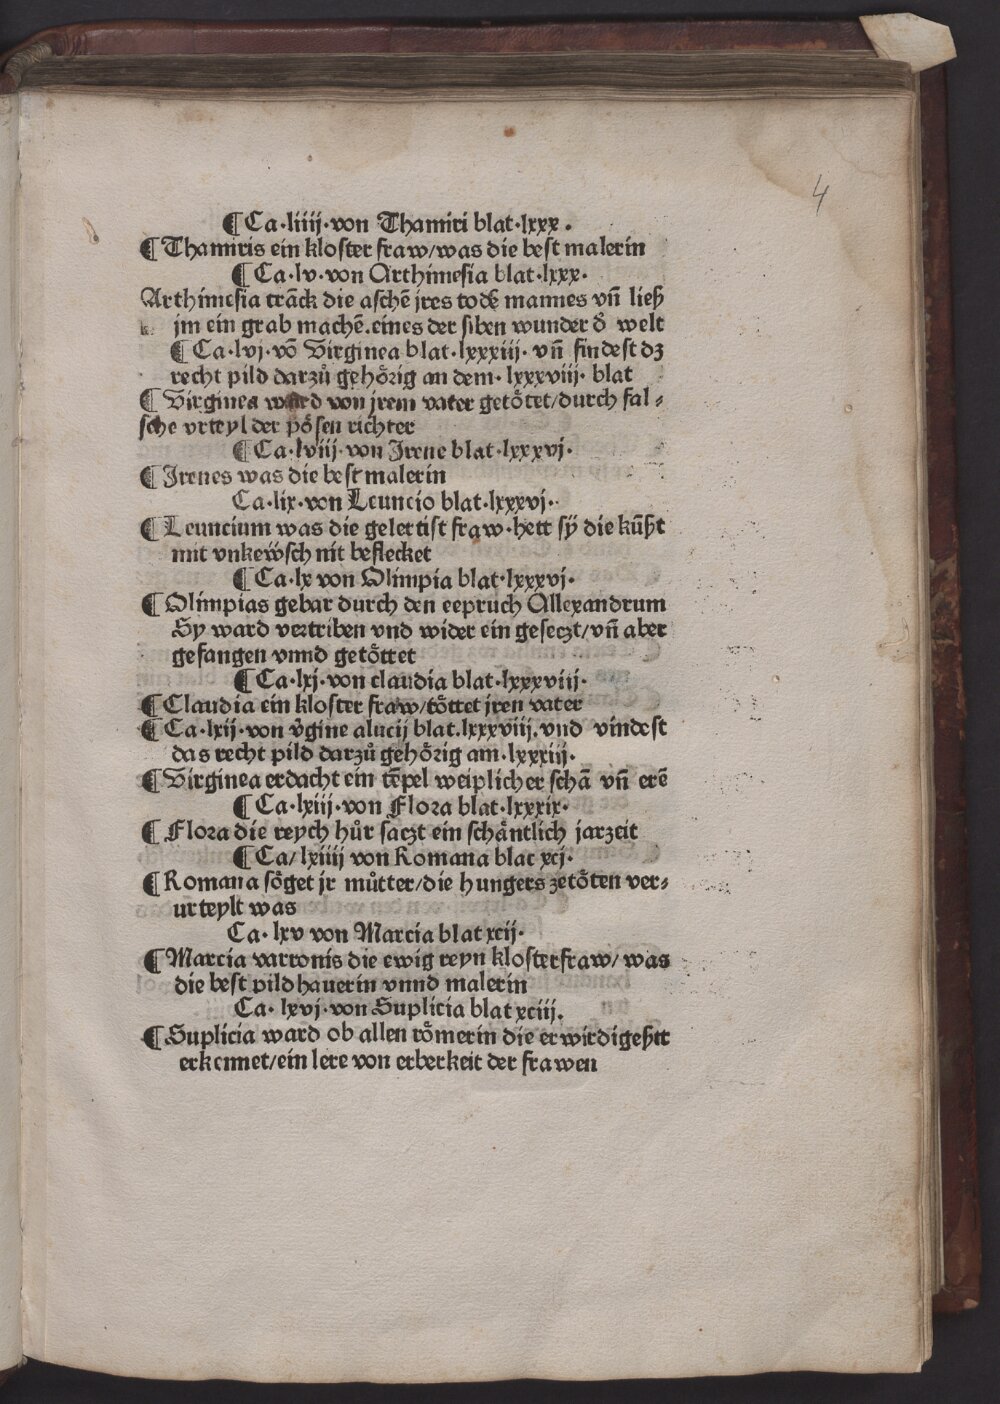 4
¶ Ca·liiij·von Thamiri blat·lxxx.
¶ Thamiris ein kloster fraw/was die best malerin
¶ Ca·lv·von Arthimesia blat·lxxx·
Arthimesia trāck die aschē jres todē mannes vn̄ ließ
jm ein grab machē.eines der siben wunder d̓ welt
¶ Ca·lvj·vō Virginea blat·lxxxiij· vn̄ findest dz
recht pild darzů gehŏ̈rig an dem·lxxxviij· blat
¶ Virginea ward von jrem vater getöttet/durch fal⸗
sche vrteyl der pösen richter
¶ Ca·lviij·von Jrene blat·lxxxvj·
¶ Jrenes was die best malerin
Ca·lix·von Leuncio blat·lxxxvj·
¶ Leuncium was die gelertist fraw·hett sÿ die kūßt
mit vnkeẅsch nit beflecket
¶ Ca·lx von Olimpia blat·lxxxvj·
¶ Olimpias gebar durch den eepruch Allexandrum
Sy ward vertriben vnd wider ein gesetzt/vn̄ aber
gefangen vnnd getöttet
¶ Ca·lxj·von claudia blat·lxxxviij·
¶ Claudia ein kloster fraw/töttet jren vater
¶ Ca·lxij·von v̓gine alucij blat.lxxxviij.vnd vindest
das recht pild darzů gehörig am·lxxxiij·
¶ Virginea erdacht ein tēpel weiplicher schā vn̄ erē
¶ Ca·lxiij·von Flora blat·lxxxix·
¶ Flora die reych hůr saczt ein schäntlich jarzeit
¶ Ca/lxiiij von Romana blat xcj·
¶ Romana söget jr můtter/die hungers zetöten ver⸗
urteylt was
Ca·lxv von Marcia blat xcij·
¶ Marcia varronis die ewig reyn klosterfraw/was
die best pildhauerin vnnd malerin
Ca·lxvj·von Suplicia blat xciij.
¶ Suplicia ward ob allen römerin die erwirdigeßtt
erkennet/ein lere von erberkeit der frawen